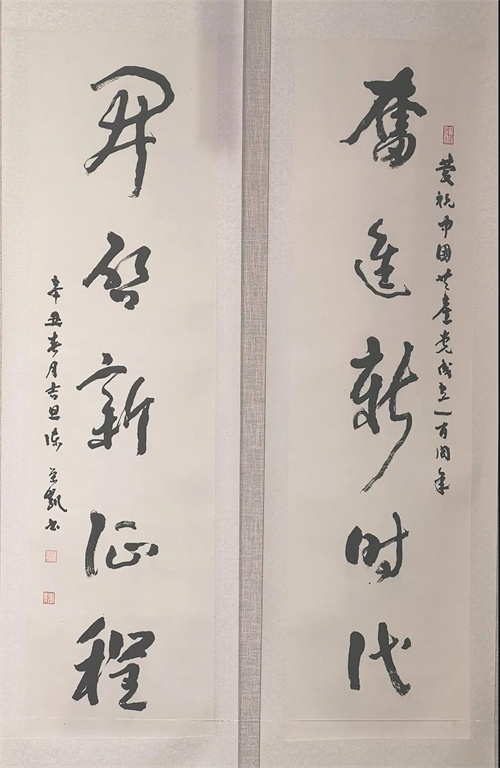 庆祝中国共产党成立一百周年
奋进新时代
开启新征程
辛丑春月吉旦 凯书